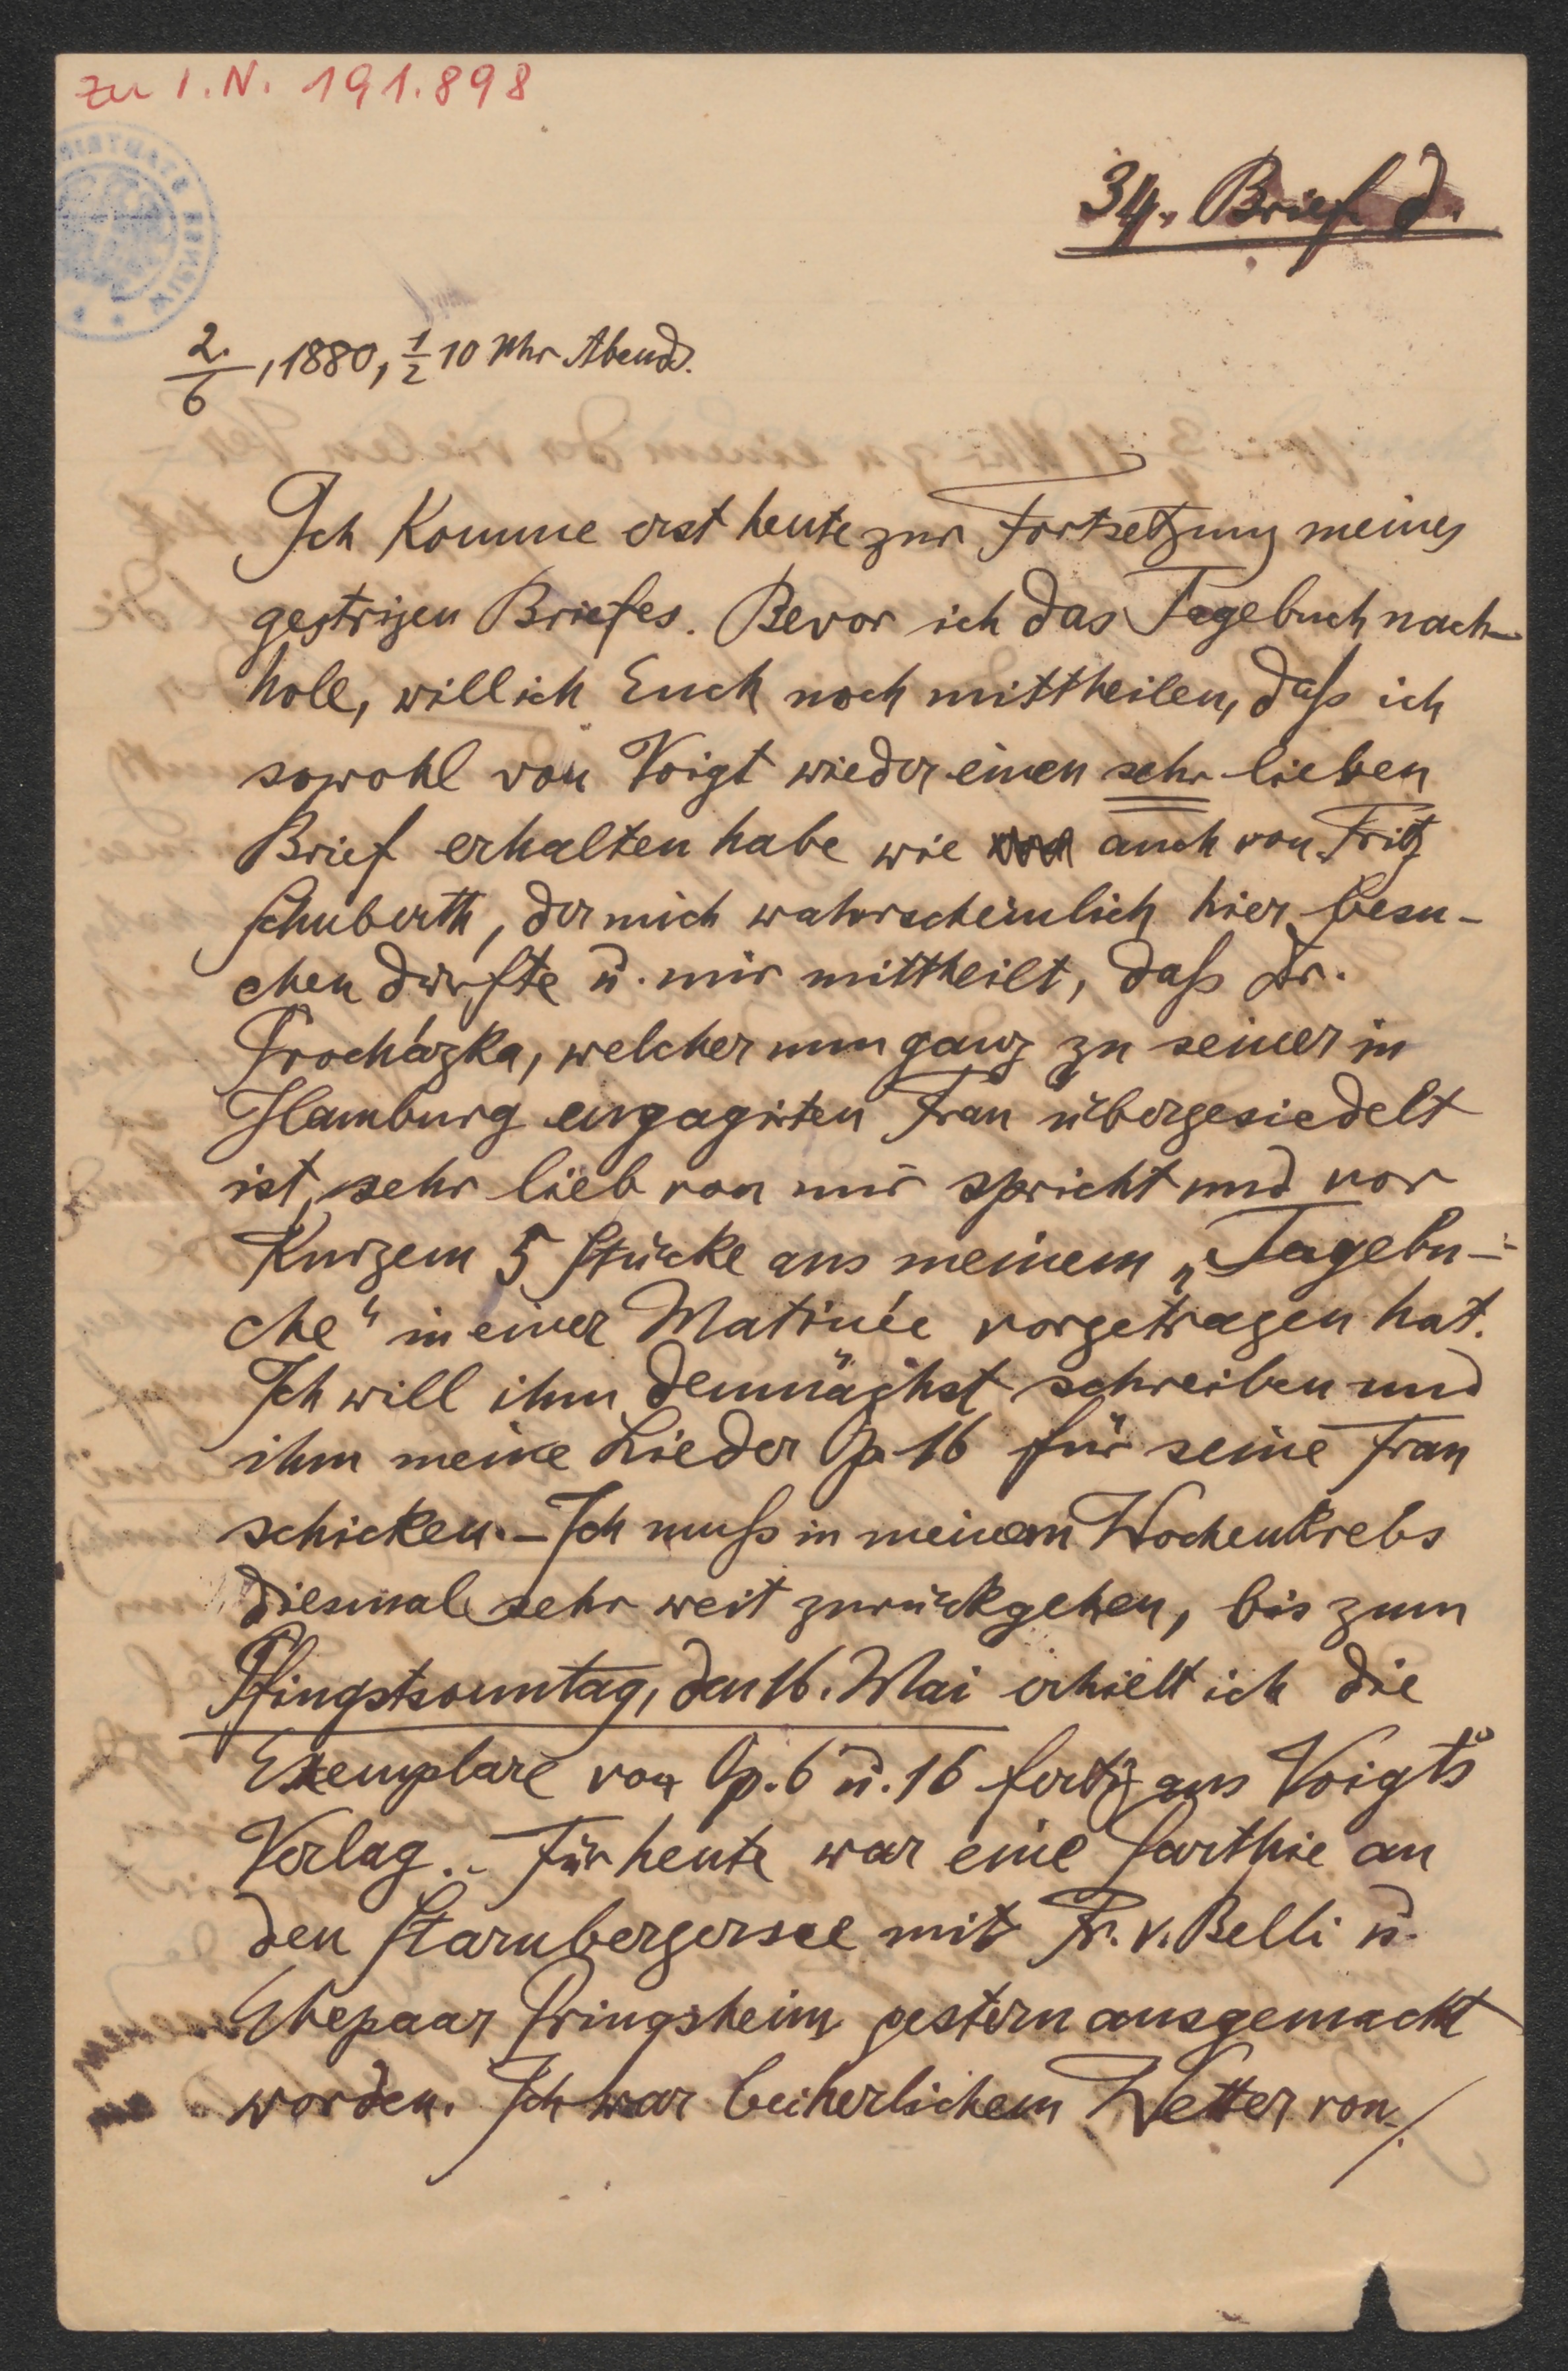 zu I.N. 191.898
34. Brief d.
2./6, 1880, 1/2 10 Uhr Abend.
Ich komme erst heute zur Fortsetzung meines
gestrigen Briefes. Bevor ich das Tagebuch nach-
hole, will ich Euch noch mittheilen, daß ich
sowohl von Voigt wieder einen sehr lieben
Brief erhalten habe wie auch von Fritz
Schuberth, der mich wahrscheinlich hier besu-
chen dürfte u. mir mittheilt, daß Dr.
Procházka, welcher nun ganz zu seiner in
Hamburg engagirten Frau übergesiedelt
ist, sehr lieb von mir spricht und vor
Kurzem 5 Stücke aus meinem „Tagebu-
che“ in einer Matinée vorgetragen hat.
Ich will ihm demnächst schreiben und
ihm meine Lieder Op. 16 für seine Frau
schicken. – Ich muß in meinem Wochenkrebs
diesmal sehr weit zurückgehen, bis zum
Pfingstsonntag, den 16. Mai erhielt ich die
Exemplare von Op. 6 u. 16 fertig aus Voigts
Verlag. – Für heute war eine Parthie an
den Starnbergersee mit Fr. v. Belli u.
Ehepaar Pringsheim gestern ausgemacht
worden. Ich war bei herlichem Wetter von ./.